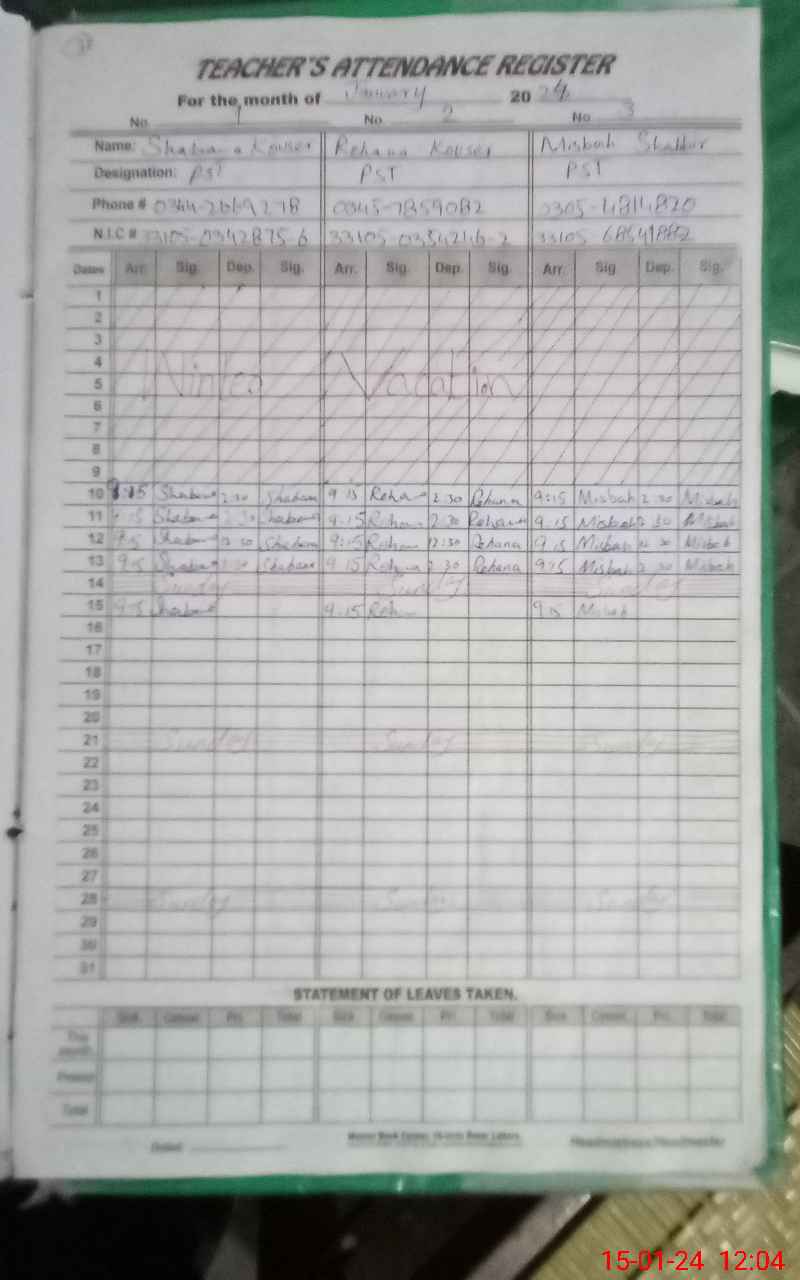 TEACHER'S ATTENDANCE REGISTER
For the month of January 2024
No. 1 No. 2 No. 3
Name: Shabana Kouser Rehana Kouser Misbah Shakkur
Designation: PST PST PST
Phone # 0344-2669278 0345-7859082 0305-4814820
N.I.C # 33105-0342875-6 33105-0354216-2 33105-
Dates Arr. Sig. Dep. Sig. Arr. Sig. Dep. Sig. Arr. Sig. Dep. Sig.
1
2
3
4
5 Winter Vacation
6
7
8
9
10 9:15 Shabana 2:30 Shabana 9:15 Rehana 2:30 Rehana 9:15 Misbah 2:30 Misbah
11 9:15 Shabana 2:30 Shabana 9:15 Rehana 2:30 Rehana 9:15 Misbah 2:30 Misbah
12 9:15 Shabana 12:30 Shabana 9:15 Rehana 12:30 Rehana 9:15 Misbah 12:30 Misbah
13 9:15 Shabana 2:30 Shabana 9:15 Rehana 2:30 Rehana 9:15 Misbah 2:30 Misbah
14 Sunday Sunday Sunday
15 9:15 Shabana 9:15 Rehana 9:15 Misbah
16
17
18
19
20
21 Sunday Sunday Sunday
22
23
24
25
26
27
28 Sunday Sunday Sunday
29
30
31
STATEMENT OF LEAVES TAKEN.
Sick Casual Pri. Total Sick Casual Pri. Total Sick Casual Pri. Total
This month
Total
15-01-24 12:04